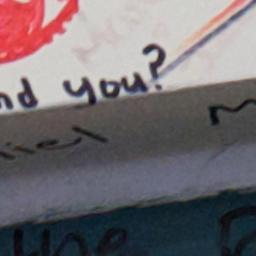 nd you?
niel M
the